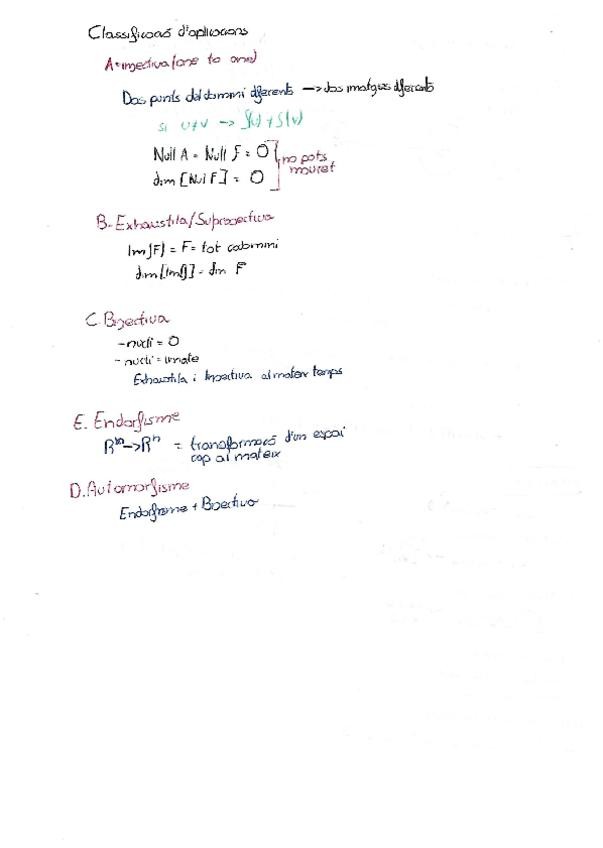 Classificació d'aplicacions
A-injectiva (one to one)
Dos punts del domini diferents → dos imatges diferents
si u≠v → f(u) ≠ f(v)
Null A = Null F = 0
dim [Nul F] = 0
no pots
moure't
B- Exhaustiva/Suprajectiva
Im[F] = F = tot codomini
dim[Imf] = dim F
C. Bijectiva
- nucli = 0
- nucli = imatge
Exhaustiva i Injectiva al mateix temps
E. Endorfisme
Rⁿ → Rⁿ = transformació d'un espai
cap al mateix
D. Automorfisme
Endorfisme + Bijectiva